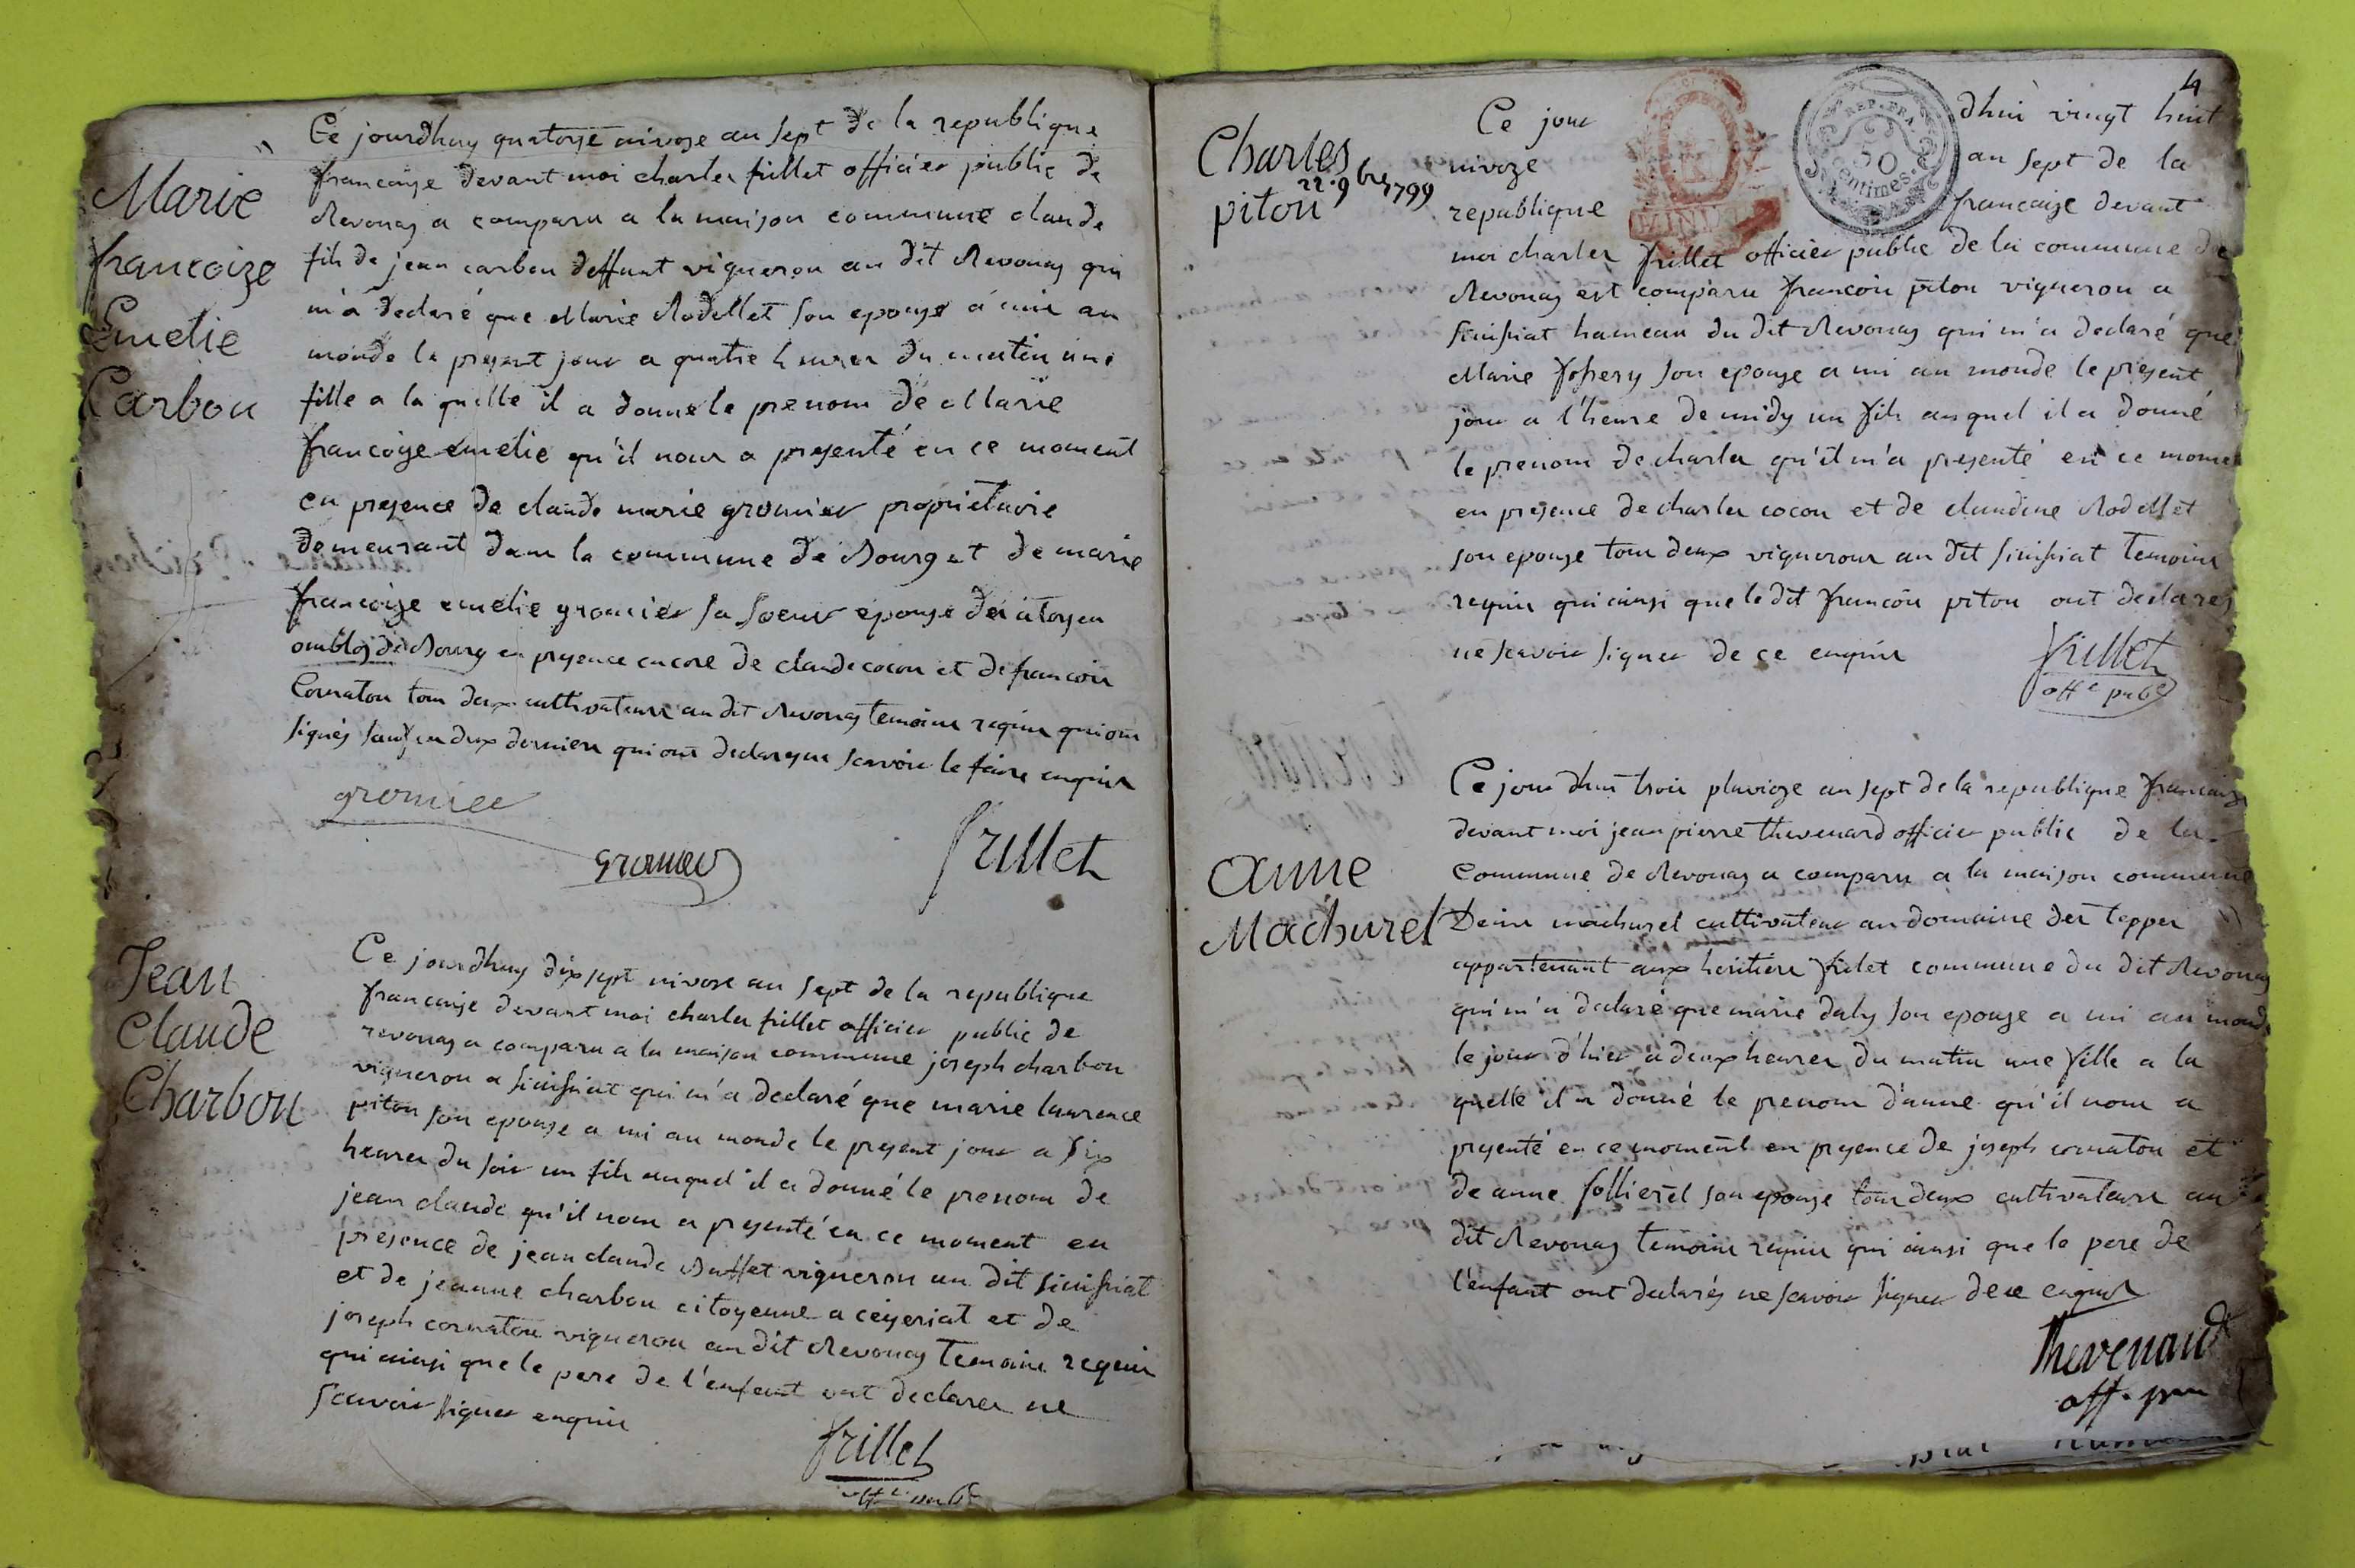 Marie
francoize
Emelie
Carbon
Ce jourdhuy quatorze nivoze an sept de la republique
francoize devant moi charles frillet officier public de
Revonas a comparu a la maison commune claude
fils de jean carbon deffunt vigneron au dit Revonas qui
m'a declaré que Marie Rodellet son epouze a mis au
monde le present jour a quatre heures du matin une
fille a la quelle il a donné le prenom de Marie
francoize emelie qu'il nous a presenté en ce moment
en presence de claude marie gromier proprietaire
demeurant dans la commune de Bourg et de marie
francoize emelie gromier sa soeur epouze du citoyen
de Bourg en presence encore de claude cocon et de francois
Cornaton tous deux cultivateurs au dit Revonas temoins requis qui ont
signés sauf les deux derniers qui ont declaré ne scavoir le faire enquis
gromier
gromier
frillet
Jean
Claude
Charbon
Ce jourdhuy dix sept nivose an sept de la republique
francaise devant moi charles frillet officier public de
revonas a comparu a la maison commune joseph charbon
vigneron a sinissiat qui m'a declaré que marie laurence
piton son epouze a mis au monde le present jour a six
heures du soir un fils auquel il a donné le prenom de
jean claude qu'il nous a presenté en ce moment en
presence de jean claude Buffet vigneron au dit sinissiat
et de jeanne charbon citoyenne a ceyzeriat et de
joseph cornaton vigneron au dit Revonas temoins requis
qui ainsi que le pere de l'enfant ont declarer ne
scavoir signer enquis
frillet
offe pube
4
Charles
piton
22 9bre 1799
Ce jour dhui vingt huit
nivoze an sept de la
republique francaize devant
moi charles frillet officier public de la commune de
Revonas est comparu francois piton vigneron a
sinissiat hameau du dit Revonas qui m'a declaré que
Marie son epouze a mis au monde le present
jour a l'heure de midy un fils auquel il a donné
le prenom de charles qu'il m'a presenté en ce momen
en presence de charles cocon et de claudine Rodellet
son epouze tous deux vignerons au dit sinissiat temoins
requis qui ainsi que le dit francois piton ont declarés
ne scavoir signer de ce enquis
frillet
offe pube
anne
Machurel
Ce jour dhui trois pluvioze an sept de la republique francaize
devant moi jean pierre thevenard officier public de la
Commune de Revonas a comparu a la maison commune
Denis machurel cultivateur au domaine des teppes
appartenant aux heritiers frilet commune du dit Revonas
qui m'a declaré que marie daly son epouze a mis au monde
le jour d'hier a deux heures du matin une fille a la
quelle il a donné le prenom d'anne qu'il nous a
presenté en ce moment en presence de joseph cornaton et
de anne sollierel son epouze tous deux cultivateurs au
dit Revonas temoins requis qui ainsi que le pere de
l'enfant ont declarés ne scavoir signer de ce enquis
Thevenard
off. pu
REP. FRA.
50
Centimes.